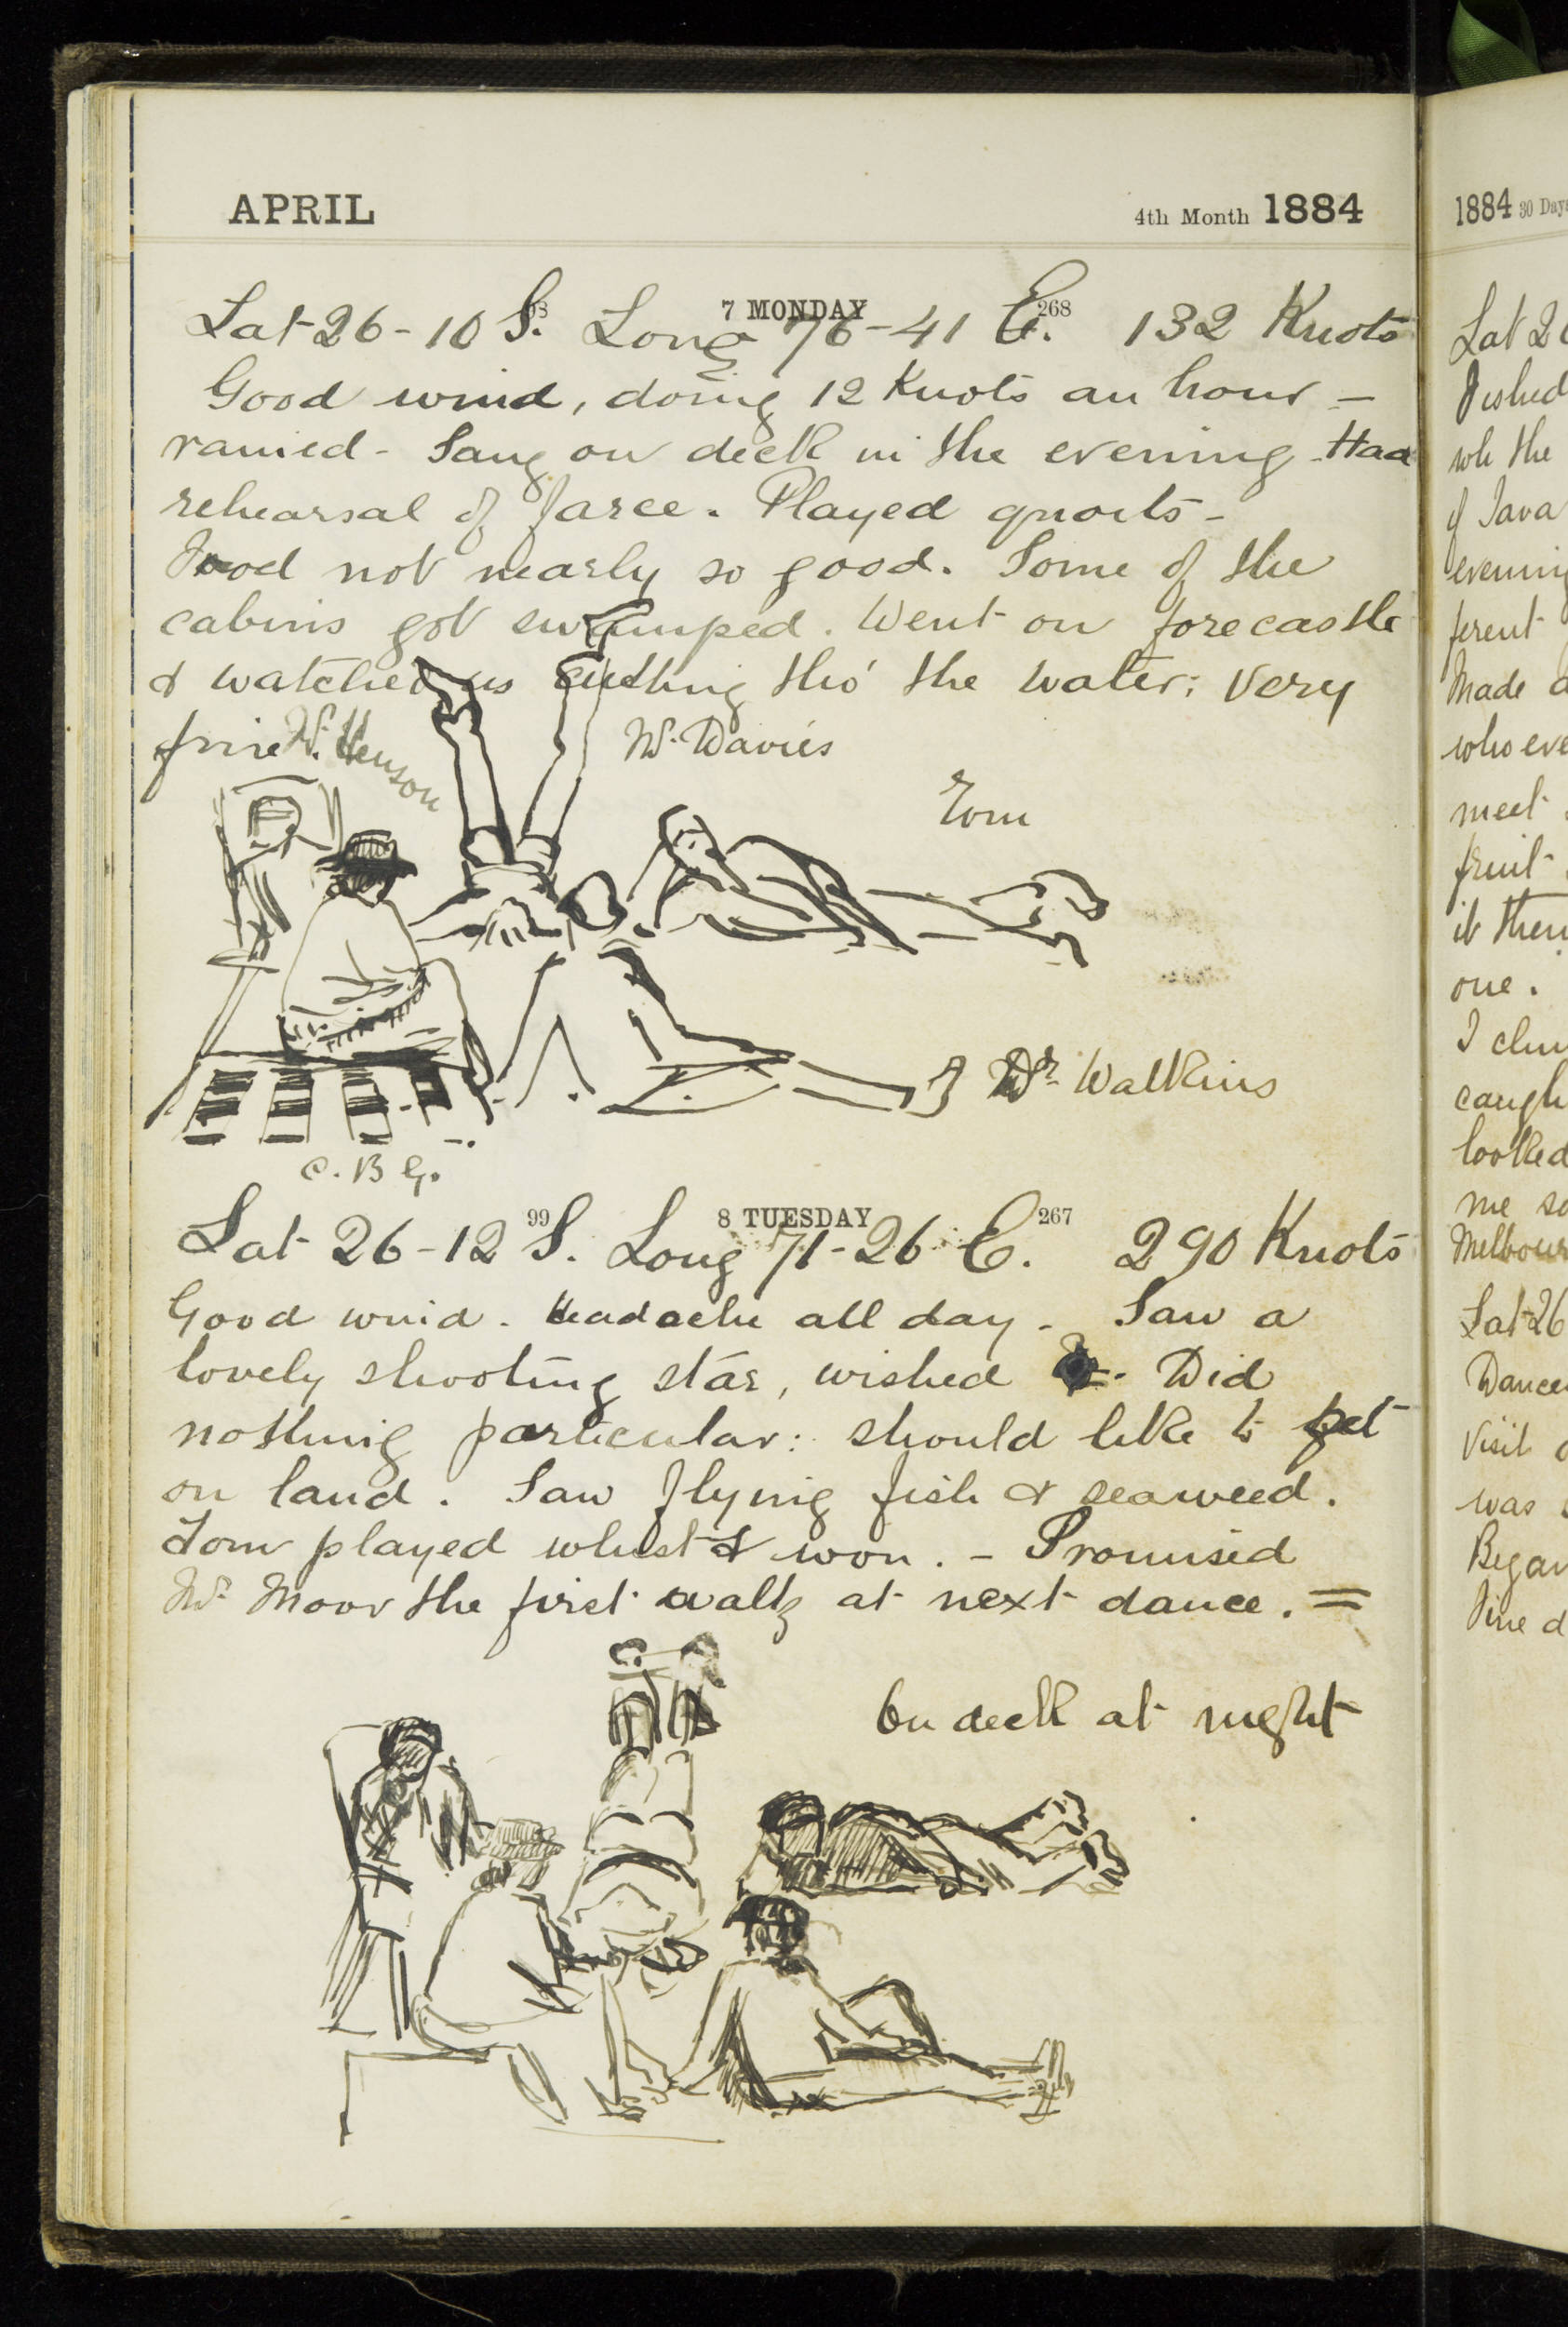 APRIL 4th Month 1884
7 MONDAY 268
Lat 26-10 S. Long 76-41 E. 132 Knots
Good wind, doing 12 Knots an hour -
rained - Sang on deck in the evening - Had
rehearsal of farce. Played quoits -
Food not nearly so good. Some of the
cabins got swamped. Went on forecastle
& watched us cutting thro' the water: very
fine
Mr. Henson
Mr. Davies
Tom
Dr. Watkins
C. B G.
99 8 TUESDAY 267
Lat 26-12 S. Long 71-26 E. 290 Knots
Good wind. Headache all day - Saw a
lovely shooting star, wished. Did
nothing particular: should like to get
on land. Saw flying fish & seaweed.
Tom played whist & won. - Promised
Mr. Moor the first waltz at next dance. =
On deck at night
1884 30 Days
Lat 2
wh the
of Java
evening
ferent
Made
who eve
meet
fruit
it then
one.
I
caugh
looked
me so
Melbour
Lat 26
Dance
Visit
was
Began
Fine d